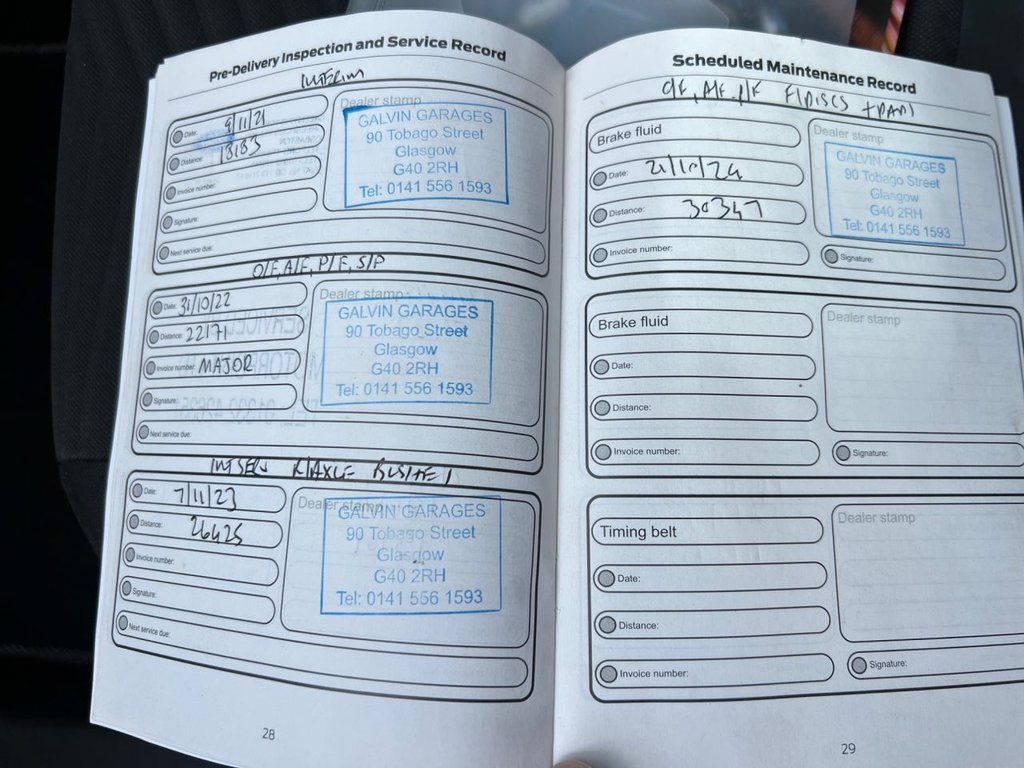 Pre-Delivery Inspection and Service Record
INTERIM
Date: 9/11/21
Distance: 13183
Invoice number:
Signature:
Next service due:
Dealer stamp
GALVIN GARAGES
90 Tobago Street
Glasgow
G40 2RH
Tel: 0141 556 1593
O/F, A/F, P/F, S/P
Date: 31/10/22
Distance: 22171
Invoice number: MAJOR
Signature:
Next service due:
Dealer stamp
GALVIN GARAGES
90 Tobago Street
Glasgow
G40 2RH
Tel: 0141 556 1593
INT SERV R/AXLE
Date: 7/11/23
Distance: 26425
Invoice number:
Signature:
Next service due:
Dealer stamp
GALVIN GARAGES
90 Tobago Street
Glasgow
G40 2RH
Tel: 0141 556 1593
28
Scheduled Maintenance Record
O/F, A/F, P/F F/DISCS + PADS
Brake fluid
Date: 21/10/24
Distance: 30347
Invoice number:
Dealer stamp
GALVIN GARAGES
90 Tobago Street
Glasgow
G40 2RH
Tel: 0141 556 1593
Signature:
Brake fluid
Date:
Distance:
Invoice number:
Dealer stamp
Signature:
Timing belt
Date:
Distance:
Invoice number:
Dealer stamp
Signature:
29